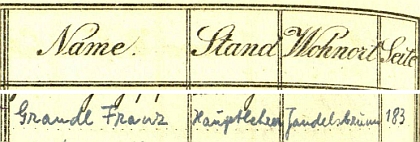 Name. Stand Wohnort Seite
Grandl Franz Hauptlehrer Jandelsbrunn 183